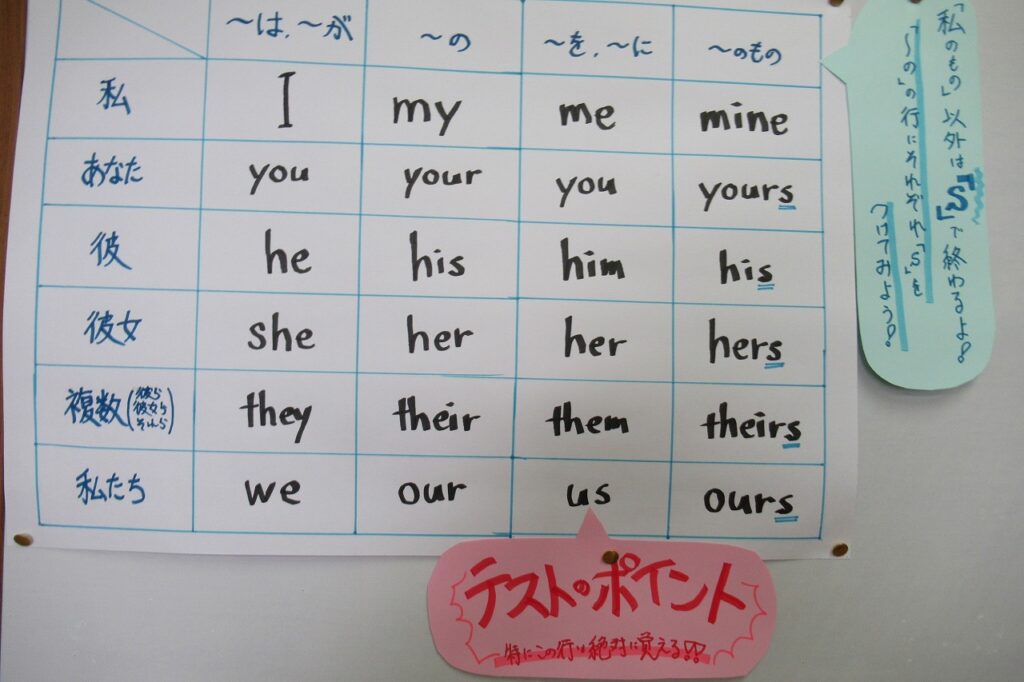 〜は、〜が 〜の 〜を、〜に 〜のもの
私 I my me mine
あなた you your you yours
彼 he his him his
彼女 she her her hers
複数(彼ら 彼女ら それら) they their them theirs
私たち we our us ours
「私のもの」以外は「S」で終わるよ!
「〜の」の行にそれぞれ「S」を
つけてみよう!
テストのポイント
特にこの行は絶対に覚える!!